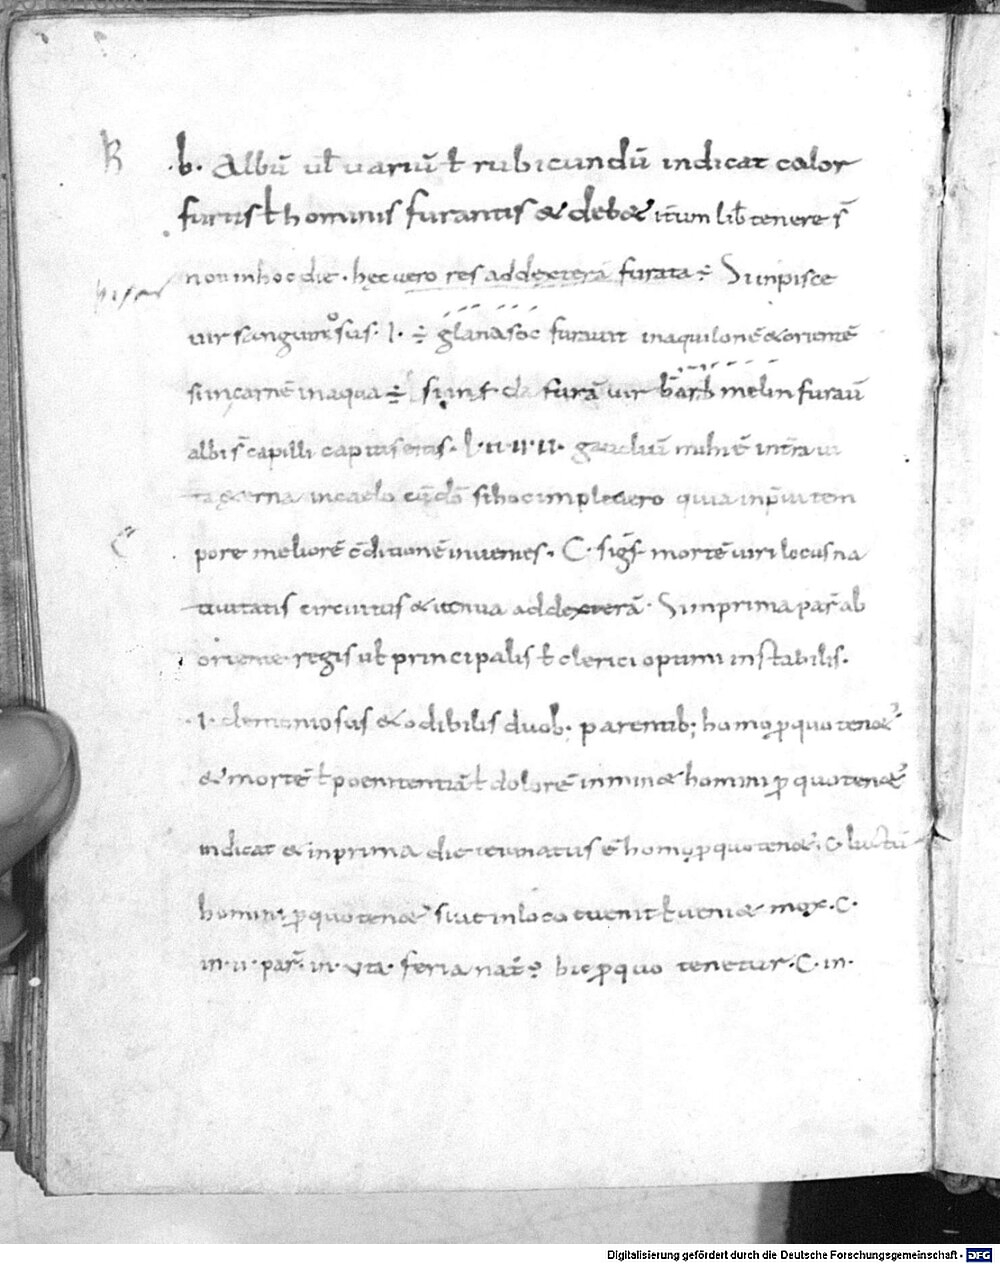 B
·b· Albū ul̄ uariū ł rubicundū indicat color
furis ł hominis furantis & deb& itum lib tenere s̄
non in hoc die · hęc uero res ad dexterā furata ÷ Si in pisce
uir sanguinosus · l · ÷ furauit in aquilonē & orientē
si in carnē in aqua ÷ furā uir furaū
albi s̄ capilli capitis · l · II · II · II · gaudiū mihi ē intra ui
in caelo si hoc impleuero quia in tem
C
pore meliorē c̄ditionē inuenies · C · sigs̄ mortē uiri locus na
tiuitatis circuitus & itenua ad dexterā · Si in prima par̄ ab
oriente regis ul̄ principalis ł clerici optimi instabilis ·
· I · demoniosus & odibilis duob · parentib; homo ꝑ quo ten&̄
& mortē ł poenitentiā ł dolorē inmin& homini ꝑ quo ten&̄
indicat & in prima die natus ē homo ꝑ quo ten& · C luctū
homini ꝑ quo ten& siue in loco euenit ł ueni& mox · C ·
in · II · par̄ in · feria nat̄ hic ꝑ quo tenetur · C · in ·
Digitalisierung gefördert durch die Deutsche Forschungsgemeinschaft - DFG